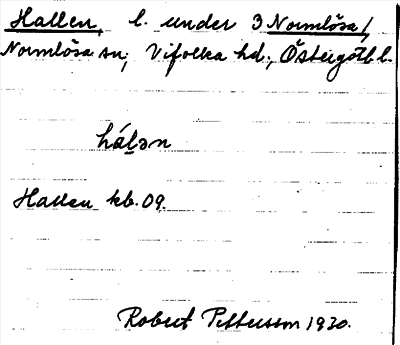 Hallen, l. under 3 Normlösa,
Normlösa sn, Vifolka hd., Östergötl. l.
háḷən
Hallen kb. 09.
Robert Pettersson 1930.